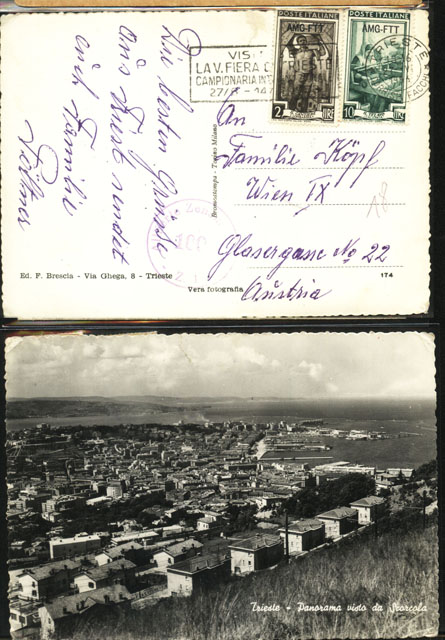 POSTE ITALIANE
AMG-FTT
2 LIRE
POSTE ITALIANE
AMG-FTT
10 LIRE
TRIESTE
LA V. FIERA
CAMPIONARIA INT
Die besten Grüsse
aus Triest sendet
auch Familie
An
Familie Köpf
Wien IX
Glasergasse No 22
Austria
18
Ed. F. Brescia - Via Ghega, 8 - Trieste
Vera fotografia
174
Trieste - Panorama visto da Scorcola